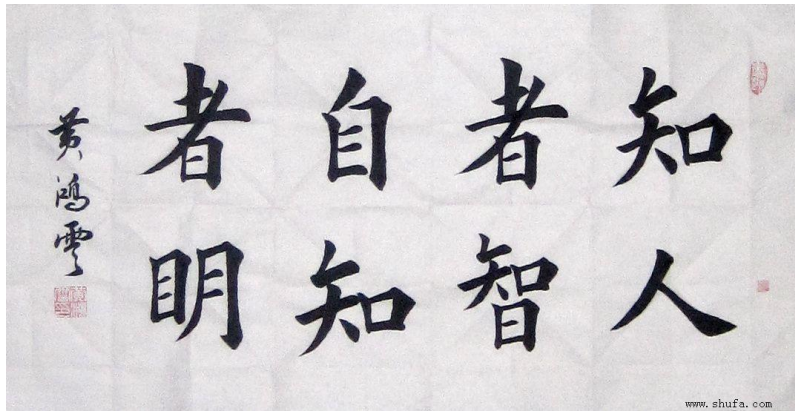 知人
者智
自知
者明
黄鴻雲
www.shufa.com